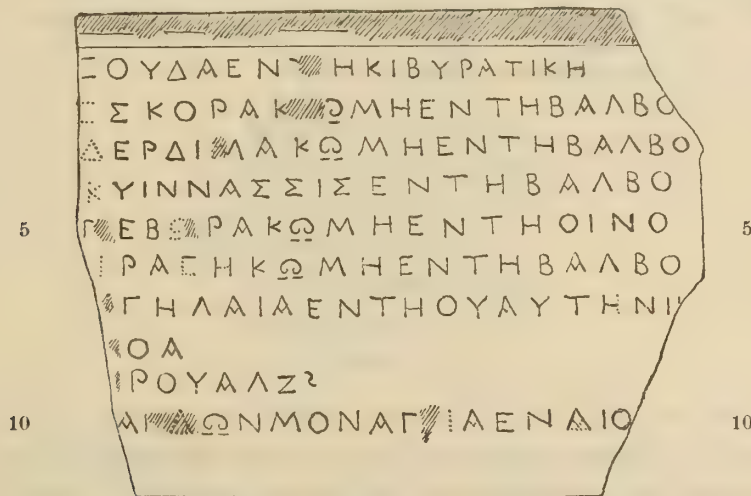 ΞΟΥΔΑΕΝ ΗΚΙΒΥΡΑΤΙΚΗ
ΕΣΚΟΡΑΚ ΩΜΗΕΝΤΗΒΑΛΒΟ
ΔΕΡΔΙ ΛΑΚΩΜΗΕΝΤΗΒΑΛΒΟ
ΚΥΙΝΝΑΣΣΙΣΕΝΤΗΒΑΛΒΟ
5 Γ ΕΒΟΡΑΚΩΜΗΕΝΤΗΟΙΝΟ 5
ΙΡΑΓΗΚΩΜΗΕΝΤΗΒΑΛΒΟ
ΓΗΛΑΙΑΕΝΤΗΟΥΑΥΤΗΝΙΙ
ΟΑ
ΡΟΥΑΛΖ
10 ΑΓ ΩΝΜΟΝΑΓ ΙΑΕΝΑΙΟ 10